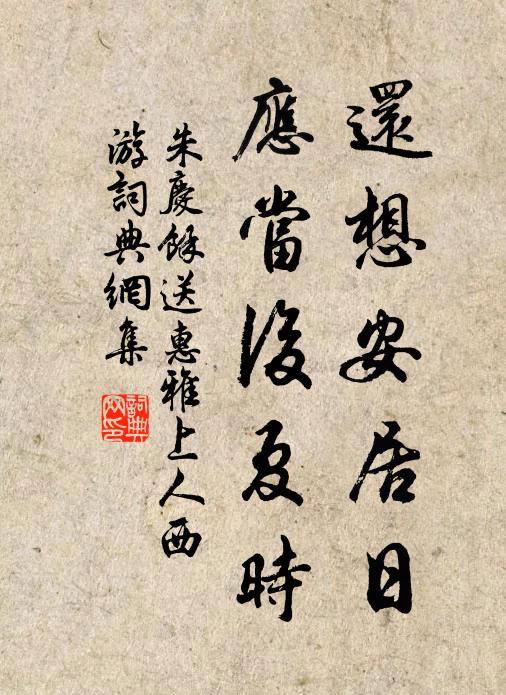 還想安居日
應當後夏時
朱慶餘送惠雅上人西
游詞典網集
詞典網印